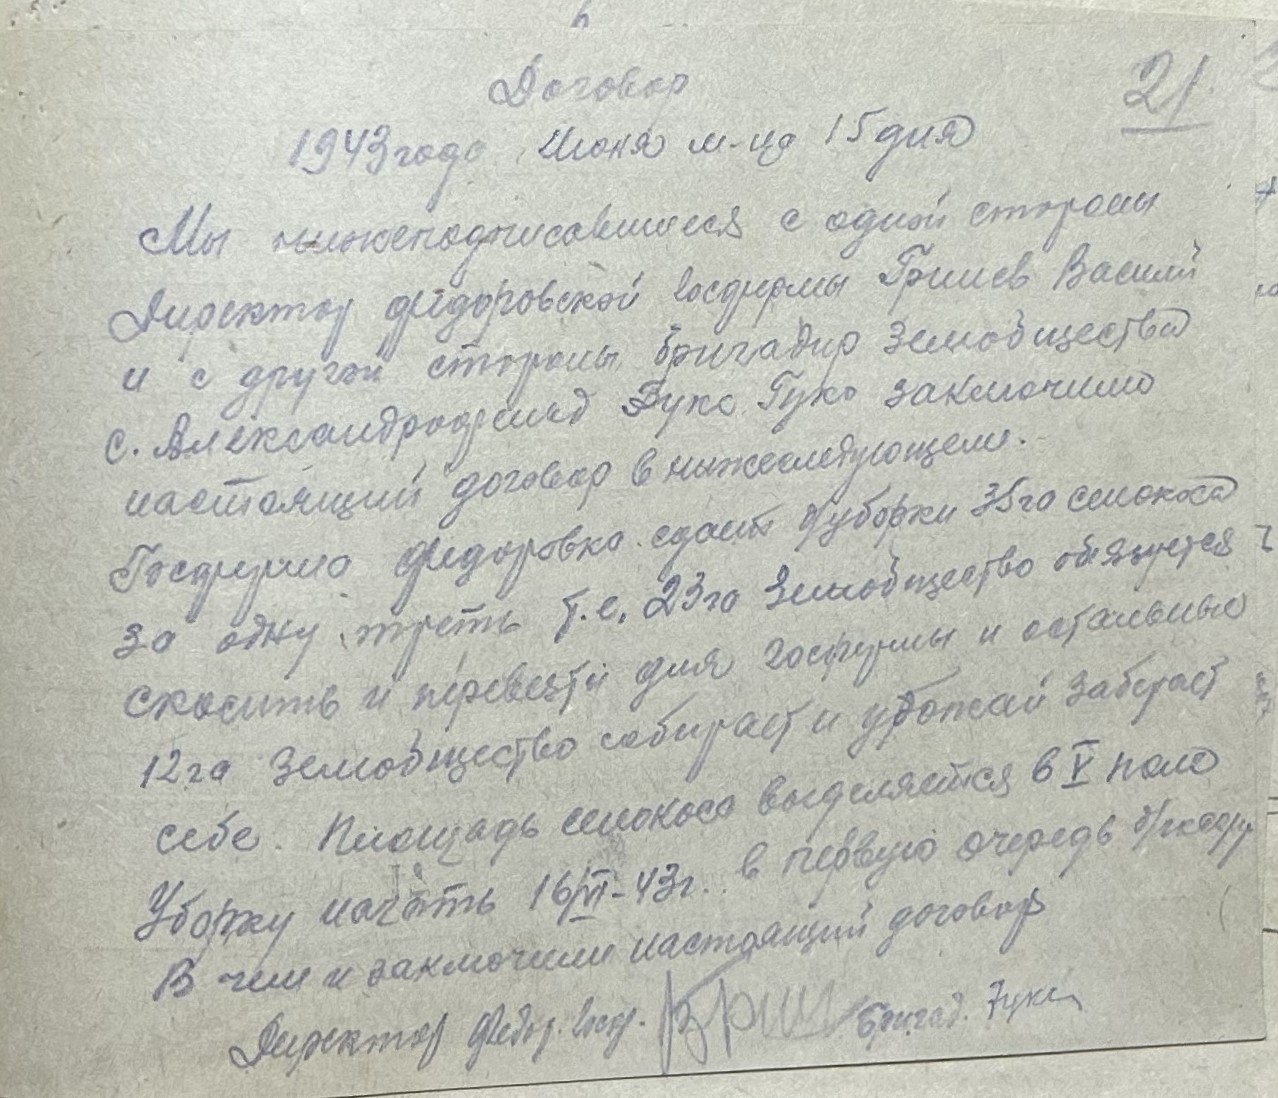 Договор
21
1943 года Июня м-ца 15 дня
Мы нижеподписавшиеся с одной стороны
Директор Федоровской Госфермы Гришев Василий
и с другой стороны бригадир Землобщества
с. Александрофельд Гуко заключили
настоящий договор в нижеследующем.
Госферма Федоровка сдает уборки 35га сенокоса
за одну треть т.е. 23га Землобщество обязуется
скосить и перевезти для госфермы и остальные
12га Землобщество собирает и урожай забирает
себе. Площадь сенокоса выделяется в V поле
Уборку начать 16/VI-43г. в первую очередь
В чем и заключили настоящий договор
Директор Федор. Госф. бригад.